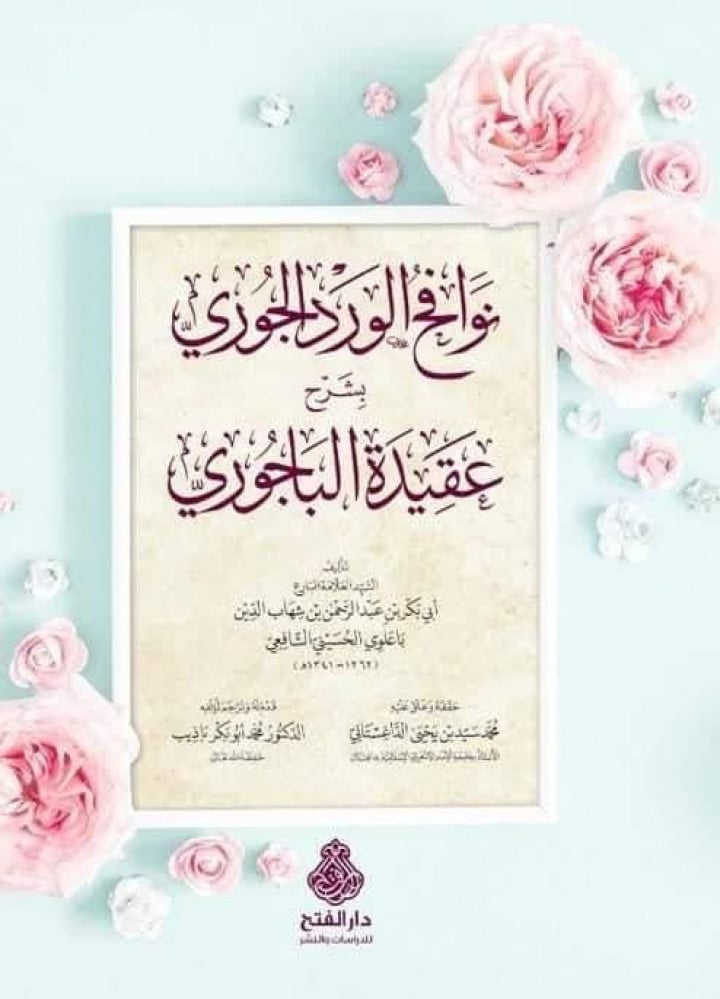 نَوَافِحُ الوَرْدِ الجُورِيّ
بِشَرْحِ
عَقِيدَةِ البَاجُورِيّ
تأليف
السيّد العلّامة البارع
أبي بكر بن عبد الرَّحمٰن بن شهاب الدّين
باعلوي الحُسَينيّ الشّافعيّ
(١٢٦٢ - ١٣٤١هـ)
حقّقه وعلّق عليه
محمّد سيّد بن يحيى الدّاغستاني
قدّم له وترجم لمؤلفه
الدكتور محمّد أبو بكر باذيب
حفظه الله تعالى
دار الفتح
للدراسات والنشر